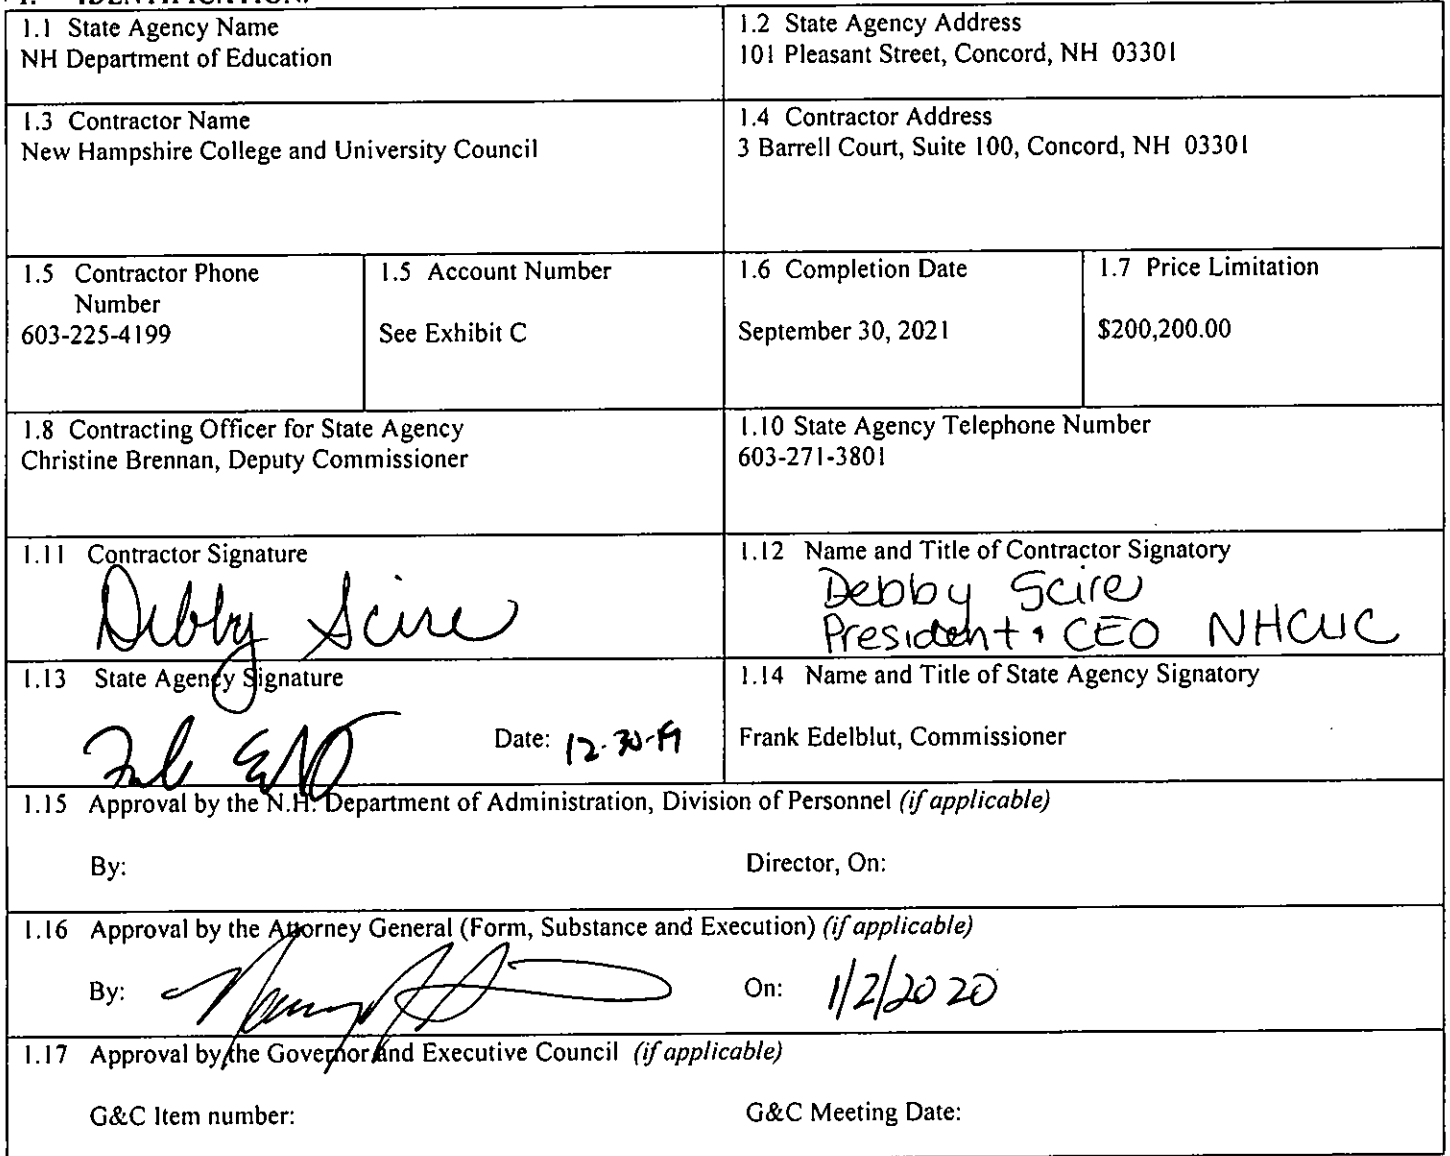 1. IDENTIFICATION.
1.1 State Agency Name
NH Department of Education
1.2 State Agency Address
101 Pleasant Street, Concord, NH 03301
1.3 Contractor Name
New Hampshire College and University Council
1.4 Contractor Address
3 Barrell Court, Suite 100, Concord, NH 03301
1.5 Contractor Phone
Number
603-225-4199
1.5 Account Number
See Exhibit C
1.6 Completion Date
September 30, 2021
1.7 Price Limitation
$200,200.00
1.8 Contracting Officer for State Agency
Christine Brennan, Deputy Commissioner
1.10 State Agency Telephone Number
603-271-3801
1.11 Contractor Signature
Debby Scire
1.12 Name and Title of Contractor Signatory
Debby Scire
President & CEO NHCUC
1.13 State Agency Signature
Date: 12-30-19
1.14 Name and Title of State Agency Signatory
Frank Edelblut, Commissioner
1.15 Approval by the N.H. Department of Administration, Division of Personnel (if applicable)
By:
Director, On:
1.16 Approval by the Attorney General (Form, Substance and Execution) (if applicable)
By:
On: 1/2/2020
1.17 Approval by the Governor and Executive Council (if applicable)
G&C Item number:
G&C Meeting Date: